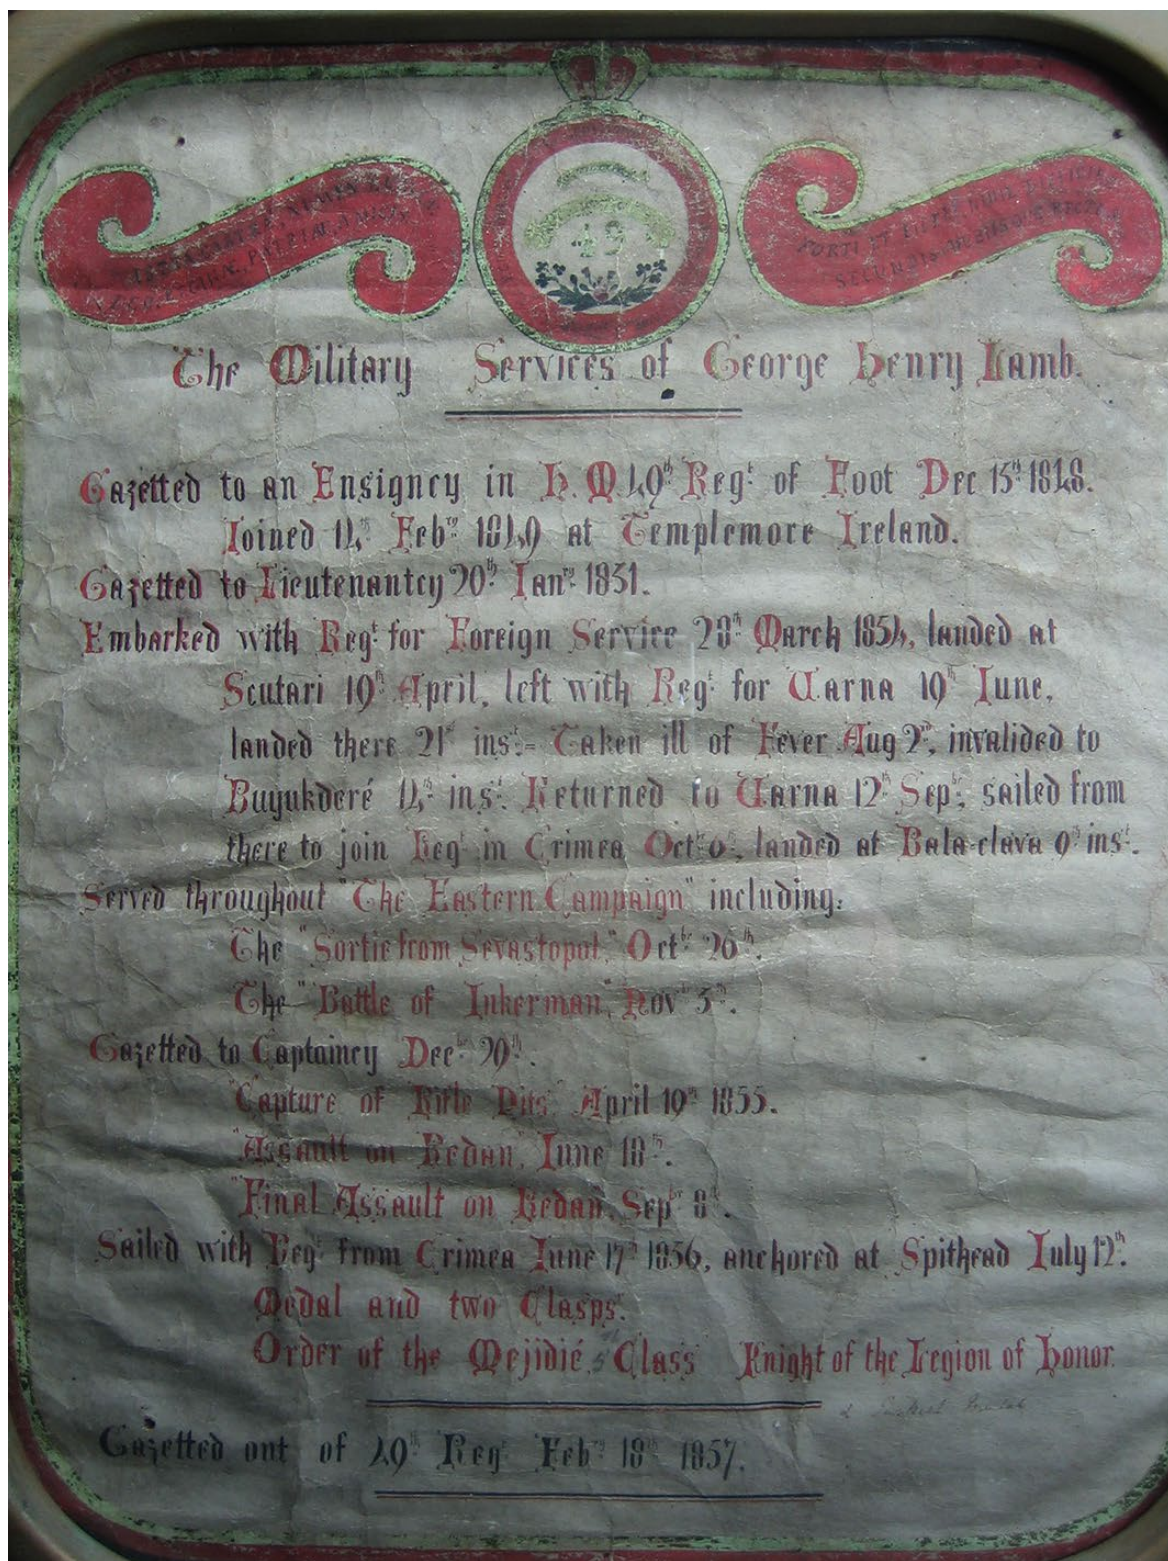 49
The Military Services of George Henry Lamb.
Gazetted to an Ensigncy in H. M 49th Regt of Foot Dec 15th 1848.
Joined 14th Febry 1849 at Templemore Ireland.
Gazetted to Lieutenantcy 20th Janry 1851.
Embarked with Regt for Foreign Service 28th March 1854, landed at
Scutari 19th April, left with Regt for Varna 19th June,
landed there 21st inst- Taken ill of Fever Aug 2nd, invalided to
Buyukderé 14th inst. Returned to Varna 12th Sepbr, sailed from
there to join Regt in Crimea Octbr 6th, landed at Bala-clava 9th inst.
Served throughout "The Eastern Campaign" including:
The "Sortie from Sevastopol," Octbr 26th.
The "Battle of Inkerman", Novbr 5th.
Gazetted to Captaincy Decbr 29th.
"Capture of Rifle Pits" April 19th 1855.
"Assault on Redan", June 18th.
"Final Assault on Redan", Sepbr 8th.
Sailed with Regt from Crimea June 17th 1856, anchored at Spithead July 12th.
Medal and two Clasps.
Order of the Mejidié 5th Class Knight of the Legion of Honor.
Gazetted out of 49th Regt Febry 18th 1857.